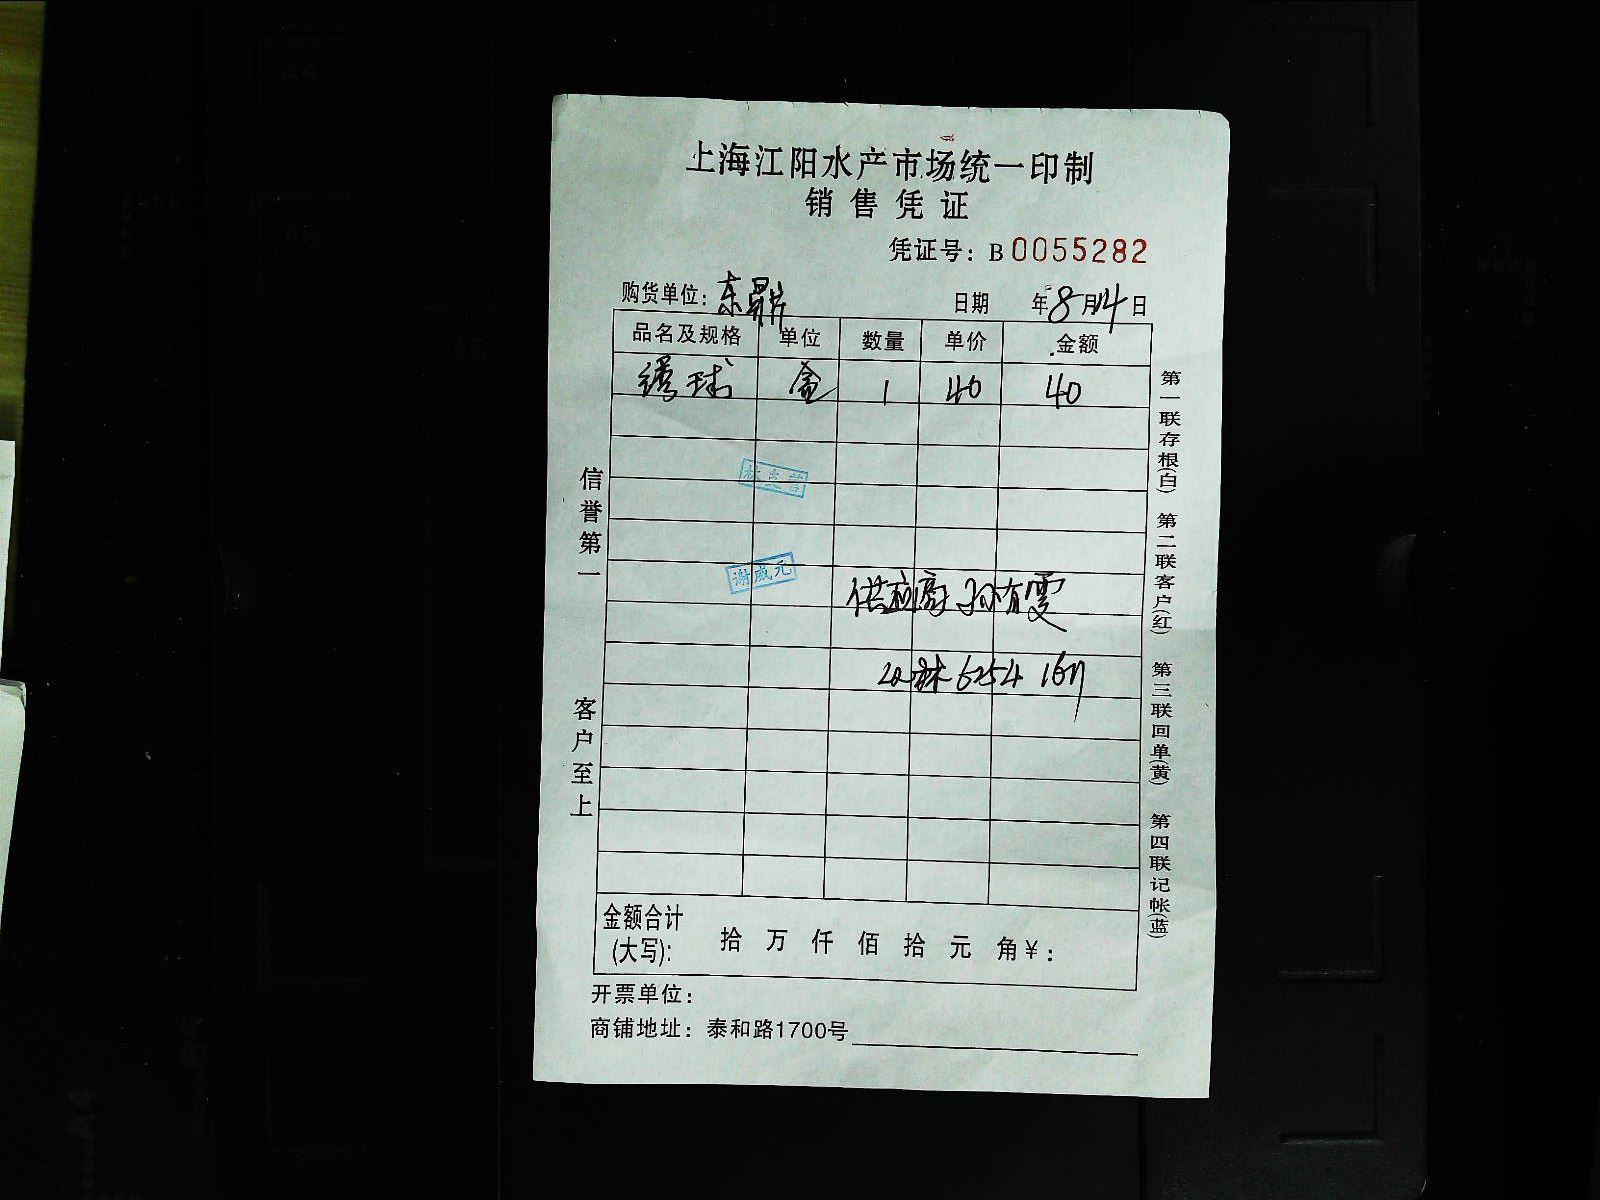 上海江阳水产市场统一印制
销售凭证
凭证号：B 0055282
购货单位：东鼎 日期 年8月14日
品名及规格 单位 数量 单价 金额
绣球 盒 1 40 40
谢咸元
供应商 孙有雯
6254 1611
信誉第一
客户至上
第一联存根(白) 第二联客户(红) 第三联回单(黄) 第四联记帐(蓝)
金额合计(大写)： 拾 万 仟 佰 拾 元 角￥：
开票单位：
商铺地址：泰和路1700号